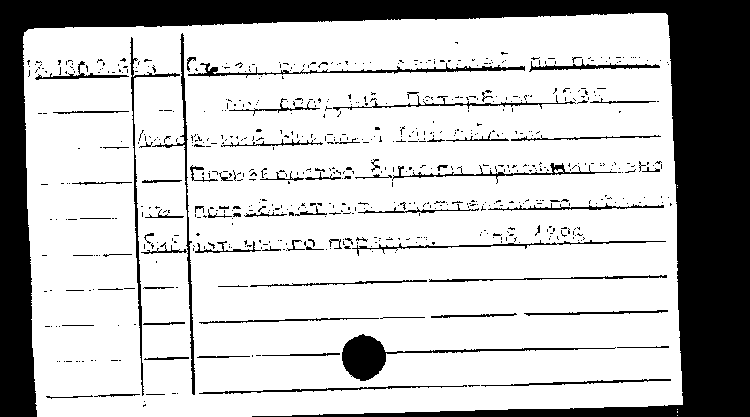 18.180.2.693 Съезд русских деятелей по печатно-
му делу, 1-й. Петербург, 1895.
Лисовский, Николай Михайлович
Производство бумаги применительно
къ потребностямъ издательскаго дѣла и
библіотечнаго порядка. Спб, 1896.